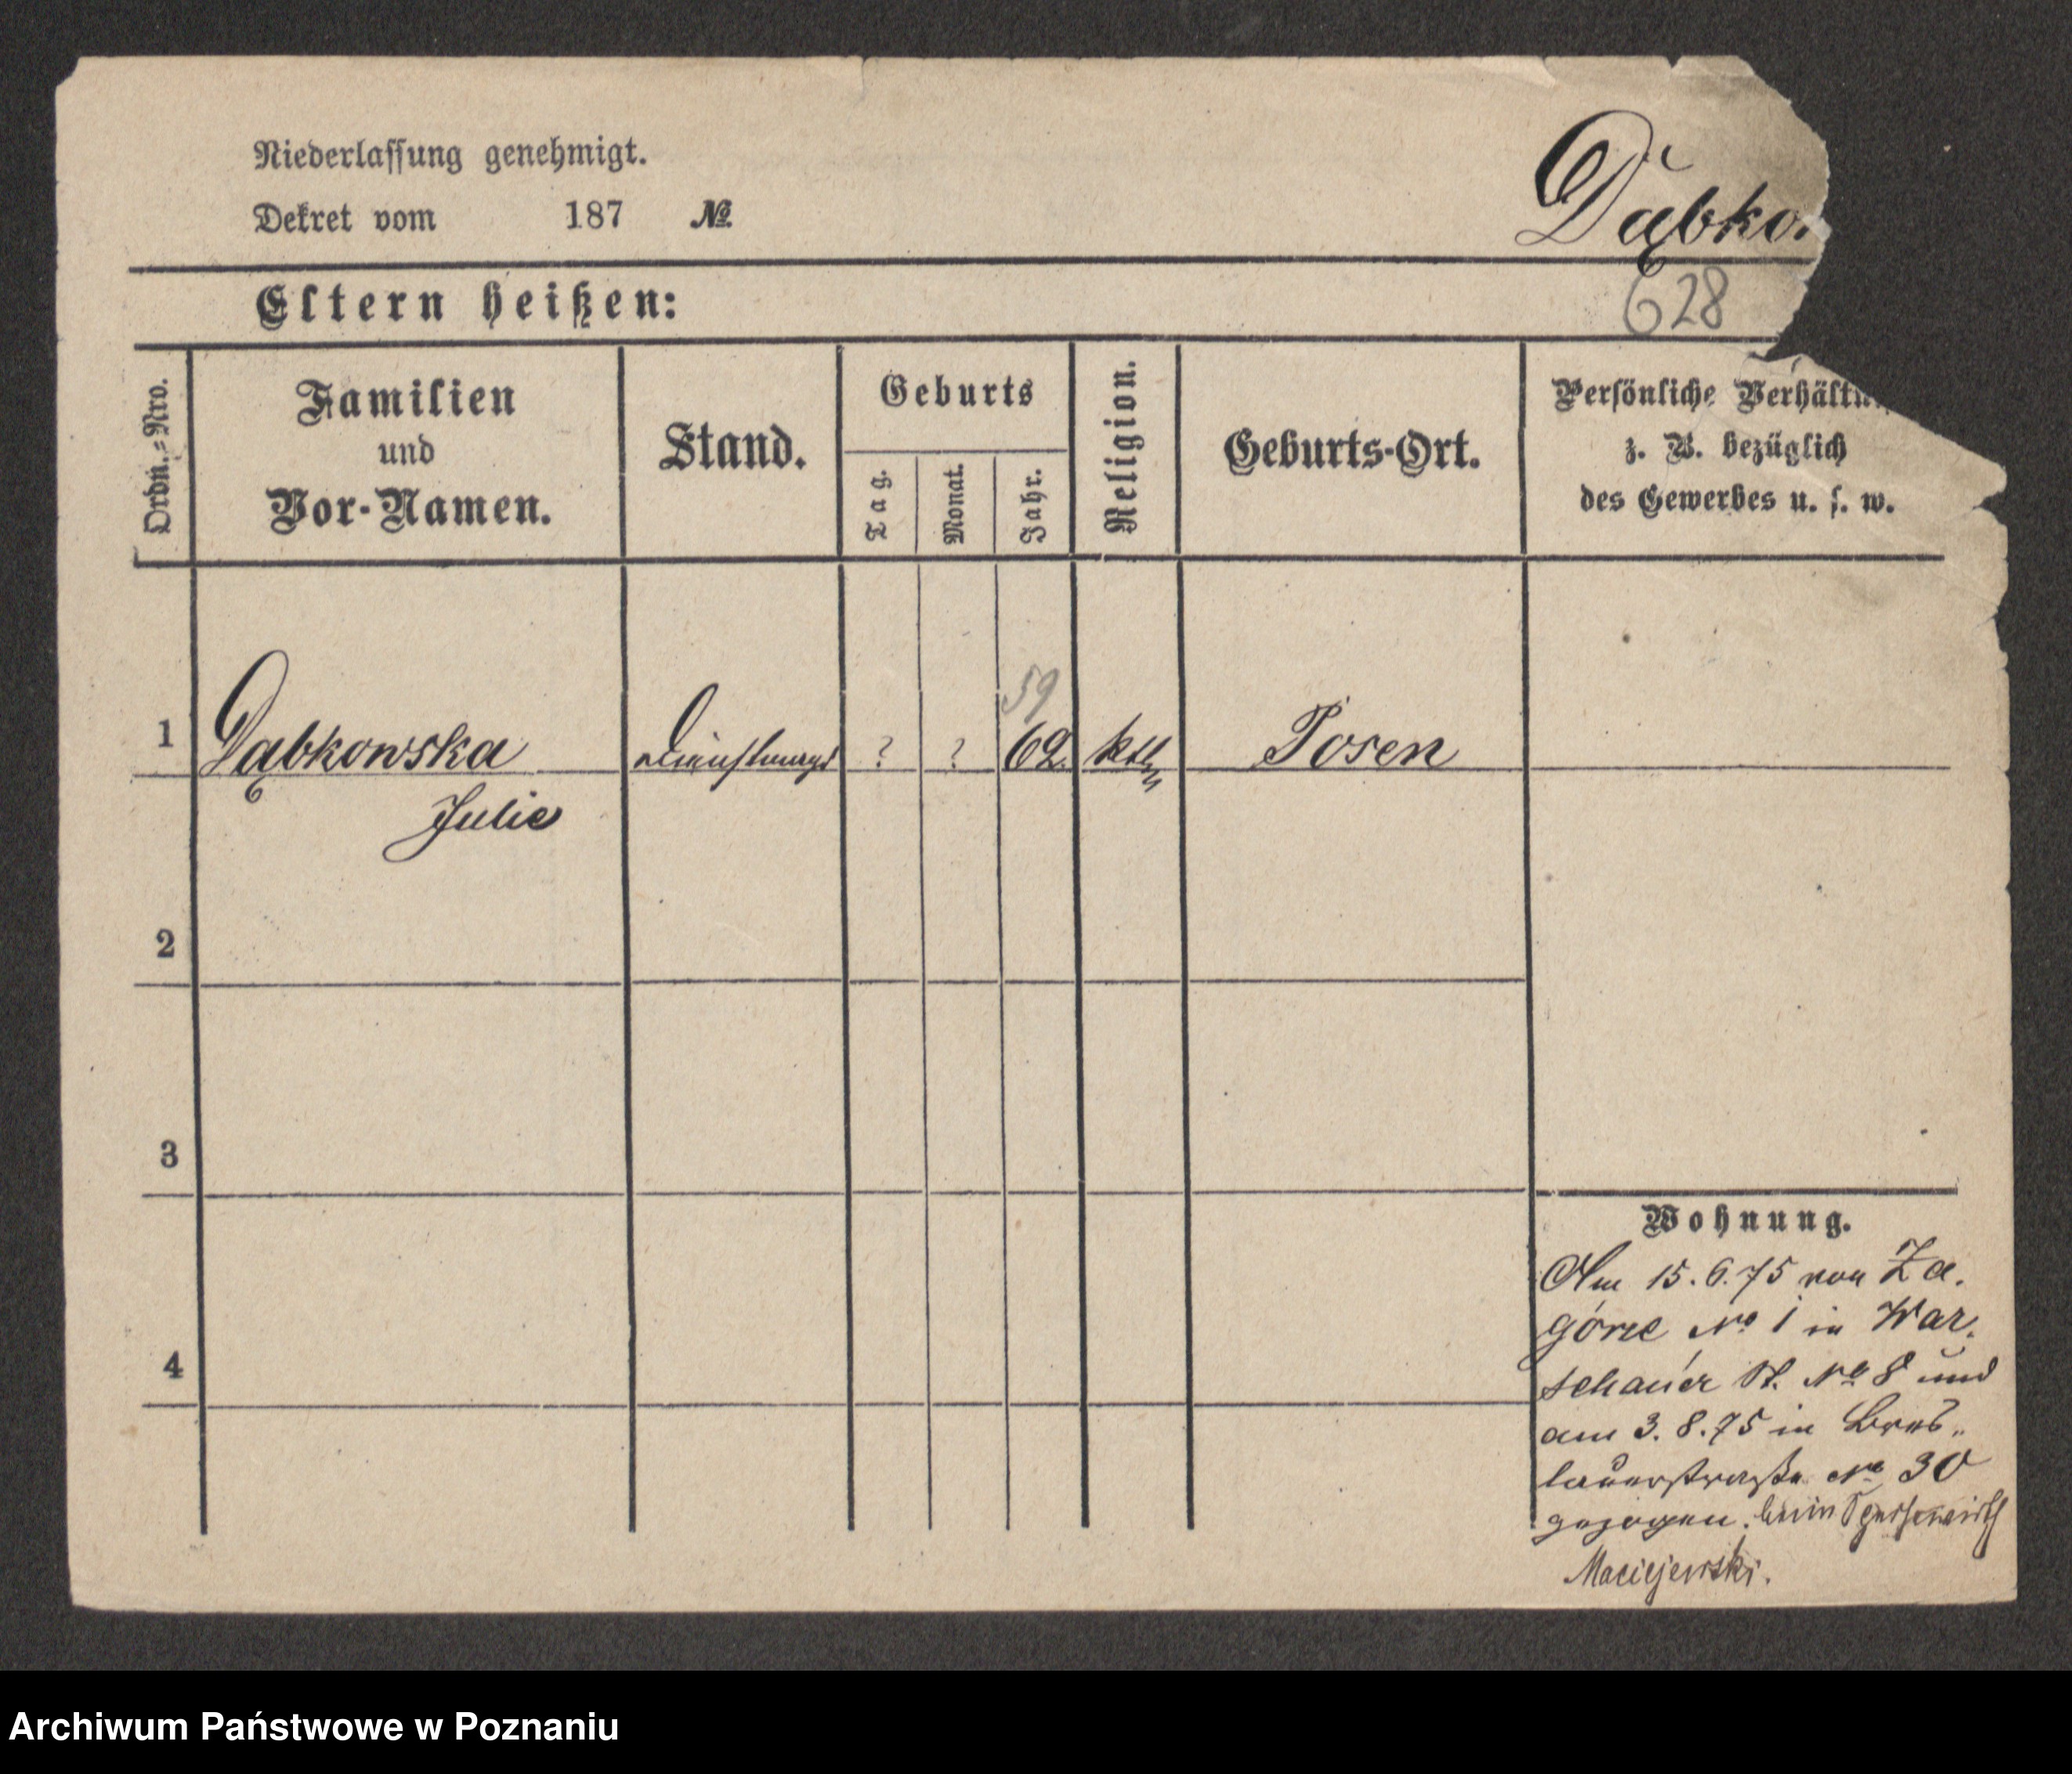 Niederlassung genehmigt.
Dekret vom 187 №
Dąbko
Eltern heißen:
628
Ordn.=Nro.
Familien
und
Vor-Namen.
Stand.
Geburts
Tag.
Monat.
Jahr.
Religion.
Geburts-Ort.
Persönliche Verhält
z. B. bezüglich
des Gewerbes u. s. w.
59
1 Dąbkowska Dienstmagd ? ? 62 kth Posen
Julie
2
3
4
Wohnung.
Am 15.6.75 von Za.
górze No 1 in War.
schauer St. No 8 und
am 3.8.75 in Bres„
lauerstraße No 30
gezogen. beim
Maciejewski.
Archiwum Państwowe w Poznaniu